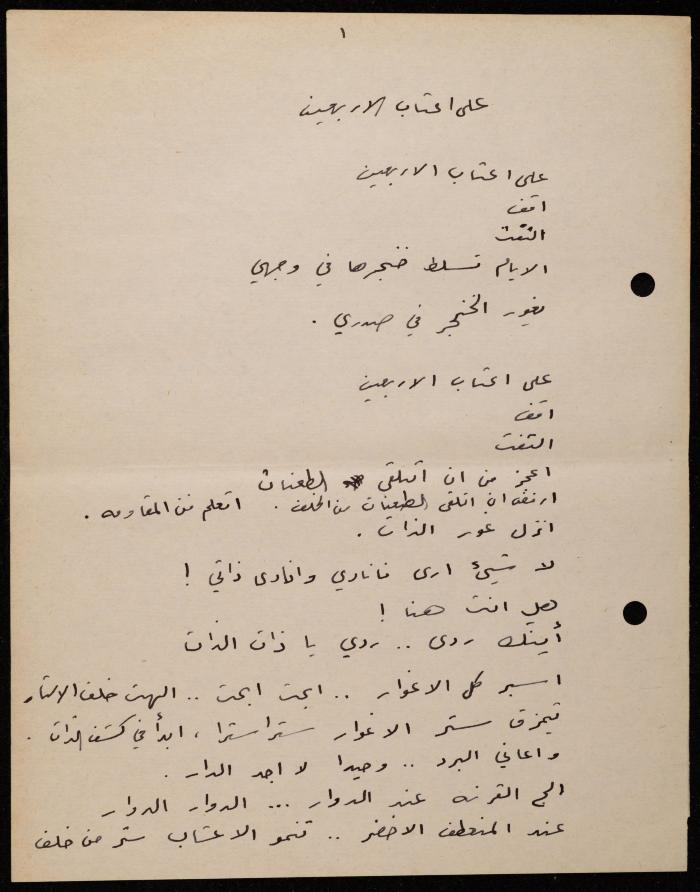 ١
على اعتاب الاربعين
على اعتاب الاربعين
اقف
التفت
الايام تسلط خنجرها في وجهي
يغور الخنجر في صدري .
على اعتاب الاربعين
اقف
التفت
اعجز من ان اتلقى الطعنات
ارفض ان اتلقى الطعنات من الخلف . اتعلم فن المقاومه .
انزل غور الذات .
لا شيئ ارى فانادي وانادى ذاتي !
هل انت هنا !
أينك ردى .. ردي يا ذات الذات
اسبر كل الاغوار .. ابحث ابحث .. الهث خلف الاستار
تتمزق ستر الاغوار سترا سترا ، ابدأ في كشف الذات .
واعاني البرد .. وحيدا لا اجد الدار .
الج القرنه عند الدوار ... الدوار الدوار
عند المنعطف الاخضر .. تنمو الاعشاب من خلف